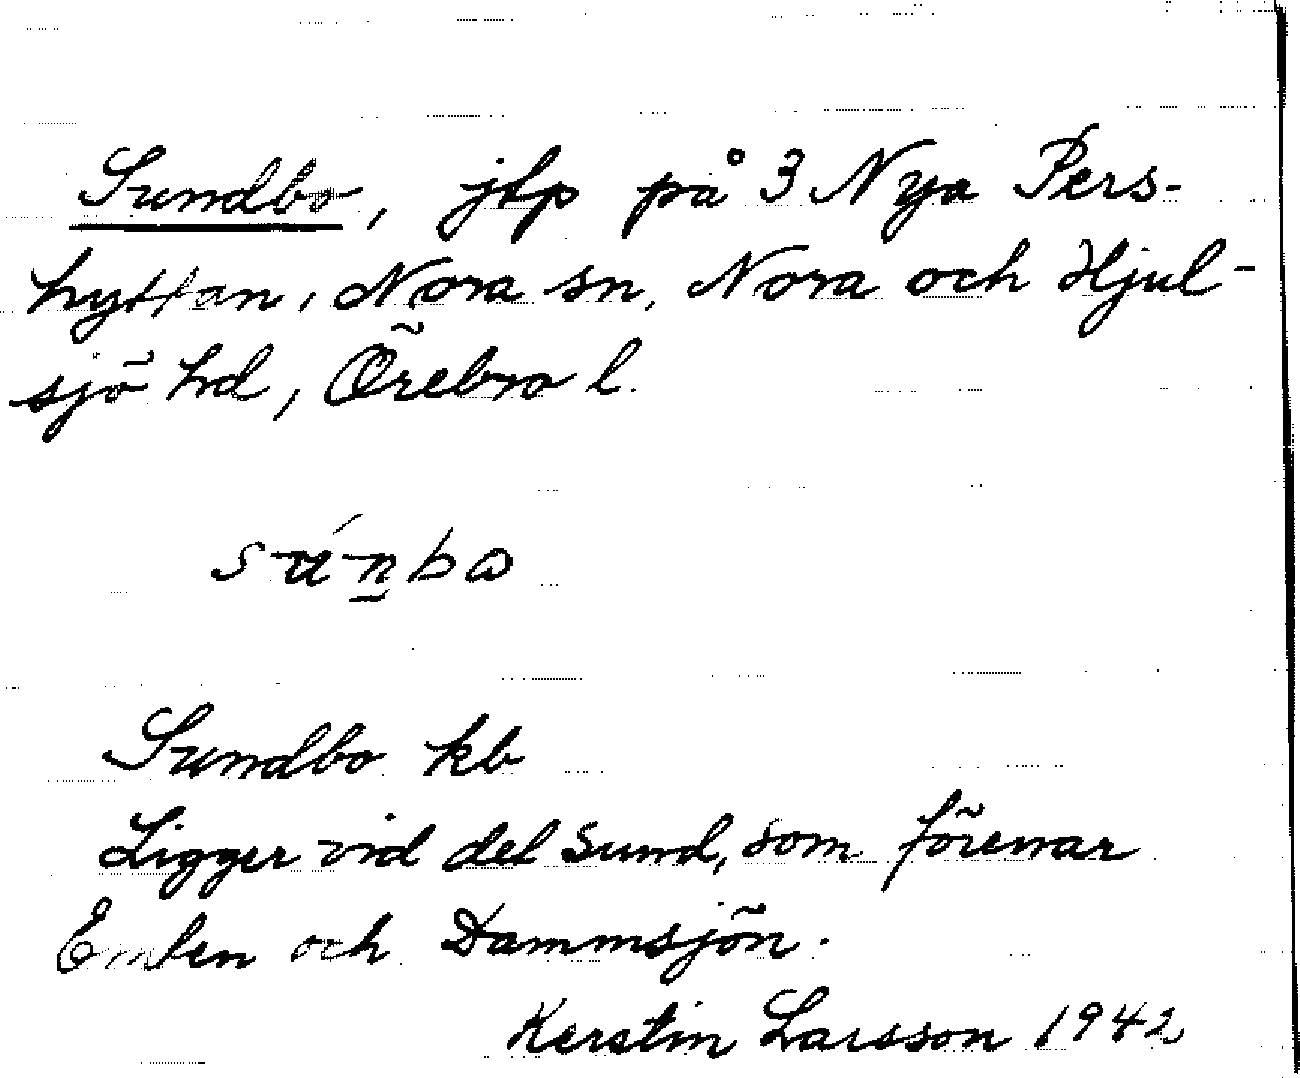 Sundbo, jbp på 3 Nya Pers-
hyttan, Nora sn, Nora och Hjul-
sjö hd, Örebro l.
Sundbo kb
Ligger vid det sund, som förenar
och Dammsjön.
Kerstin Larsson 1942